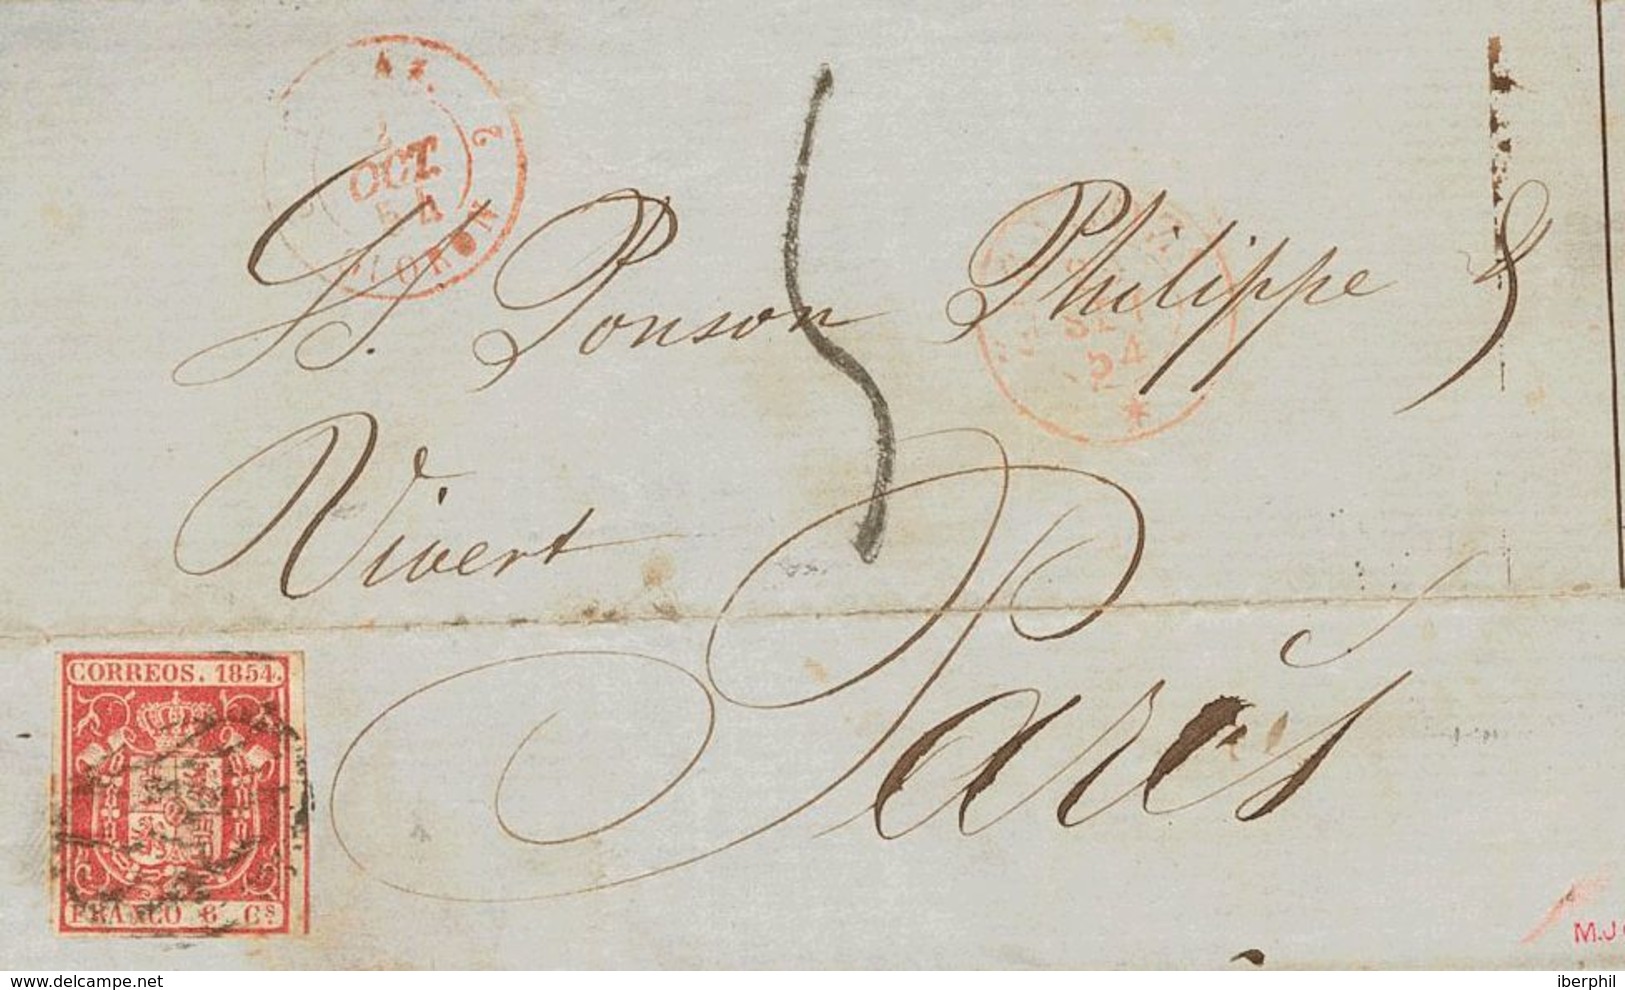 OCT.
54
OLORON 2
SS. Ponson Philippe &
54
Vivert
París
CORREOS. 1854.
FRANCO 6 Cs
M.J
delcampe.net
iberphil